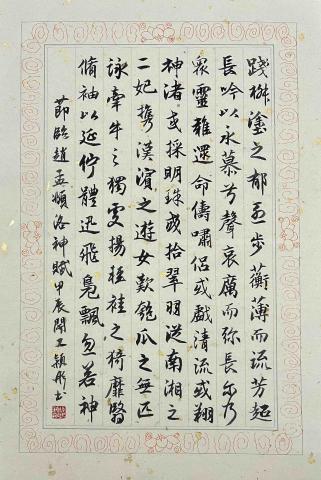 踐椒塗之郁烈步蘅薄而流芳超
長吟以永慕兮聲哀厲而弥長尔乃
衆靈雜遝命儔嘯侶或戲清流或翔
神渚或採明珠或拾翠羽從南湘之
二妃携漢濱之遊女歎匏瓜之無匹
詠牽牛之獨處揚輕袿之猗靡翳
脩袖以延佇體迅飛鳧飄忽若神
節臨趙孟頫洛神賦甲辰穎彤书